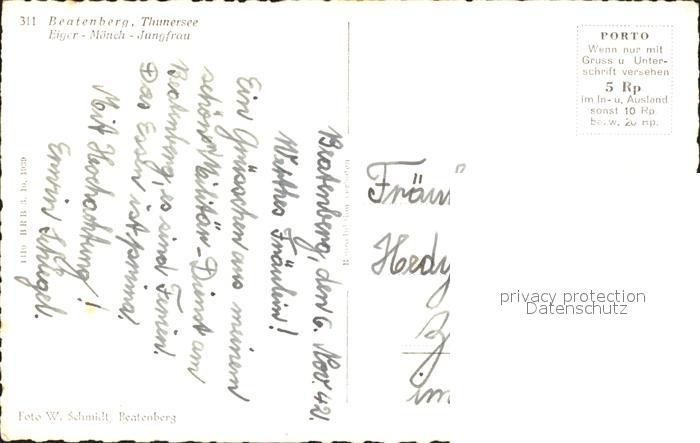 311 Beatenberg, Thunersee
Eiger - Mönch - Jungfrau
Beatenberg, den 6. Nov. 42.
Werthes Fräulein!
Ein Grüsschen aus meinem
schönen Militär-Dienst am
Beatenberg, es sind Ferien.
Das Essen ist prima.
Mit Hochachtung!
Erwin Schlegel.
1419 BRB 3. 10. 1939
Foto W. Schmidt, Beatenberg
PORTO
Wenn nur mit
Gruss u. Unter-
schrift versehen
5 Rp
im In- u. Ausland
sonst 10 Rp
bezw. 20 Rp.
Fräul
Hedy
im
privacy protection
Datenschutz